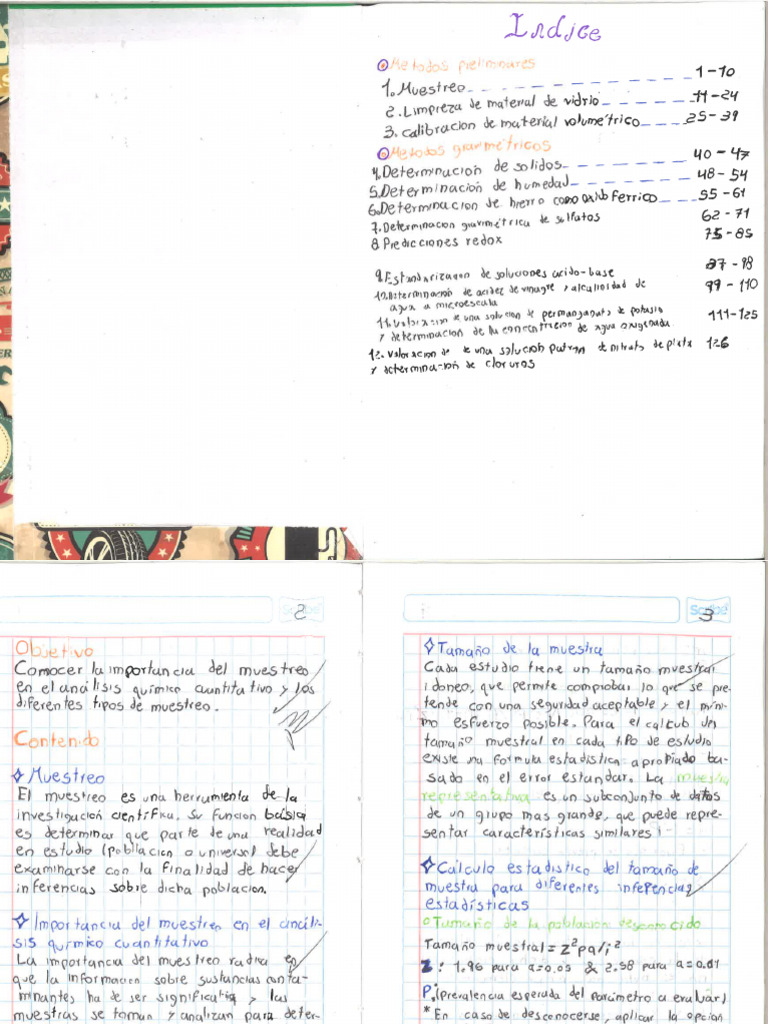 Indice
Metodos preliminares
1. Muestreo 1-10
2. Limpreza de material de vidrio 11-24
3. Calibracion de material volumétrico 25-39
Metodos gravimétricos
4. Determinación de solidos 40-47
5. Determinación de humedad 48-54
6. Determinacion de hierro como oxido ferrico 55-61
7. Determinacion gravimétrica de sulfatos 62-71
8. Predicciones redox 75-85
9. Estandarizacion de soluciones acido-base 87-98
12. Determinación de acidez de vinagre y alcalinidad de 99-110
agua a microescala
11. Valoracion de una solucion de permanganato de potasio 111-125
y determinacion de la concentracion de agua oxigenada
12. Valoracion de de una solucion patron de nitrato de plata 126
y determina-ción de cloruros
Scribe
2
Objetivo
Conocer la importancia del muestreo
en el análisis químico cuantitativo y los
diferentes tipos de muestreo.
Contenido
Muestreo
El muestreo es una herramienta de la
investigación científica. Su funcion básica
es determinar que parte de una realidad
en estudio (poblacion o universo) debe
examinarse con la finalidad de hacer
inferencias sobre dicha poblacion.
Importancia del muestreo en el análi-
sis químico cuantitativo
La importancia del muestreo radica en
que la informacion sobre sustancias conta-
minantes ha de ser significativa y las
muestras se toman y analizan para deter-
Scribe
3
Tamaño de la muestra
Cada estudio tiene un tamaño muestral
idoneo, que permite comprobar lo que se pre-
tende con una seguridad aceptable y el míni-
mo esfuerzo posible. Para el calculo del
tamaño muestral en cada tipo de estudio
existe una formula estadística apropiado ba-
sado en el error estandar. La muestra
representativa es un subconjunto de datos
de un grupo mas grande, que puede repre-
sentar características similares
Calculo estadistico del tamaño de
muestra para diferentes inferencias
estadísticas
Tamaño de la población desconocido
Tamaño muestral = Z²pq/i²
Z: 1.96 para a=0.05 & 2.58 para a=0.01
P: (prevalencia esperada del parámetro a evaluar)
* En caso de desconocerse, aplicar la opcion